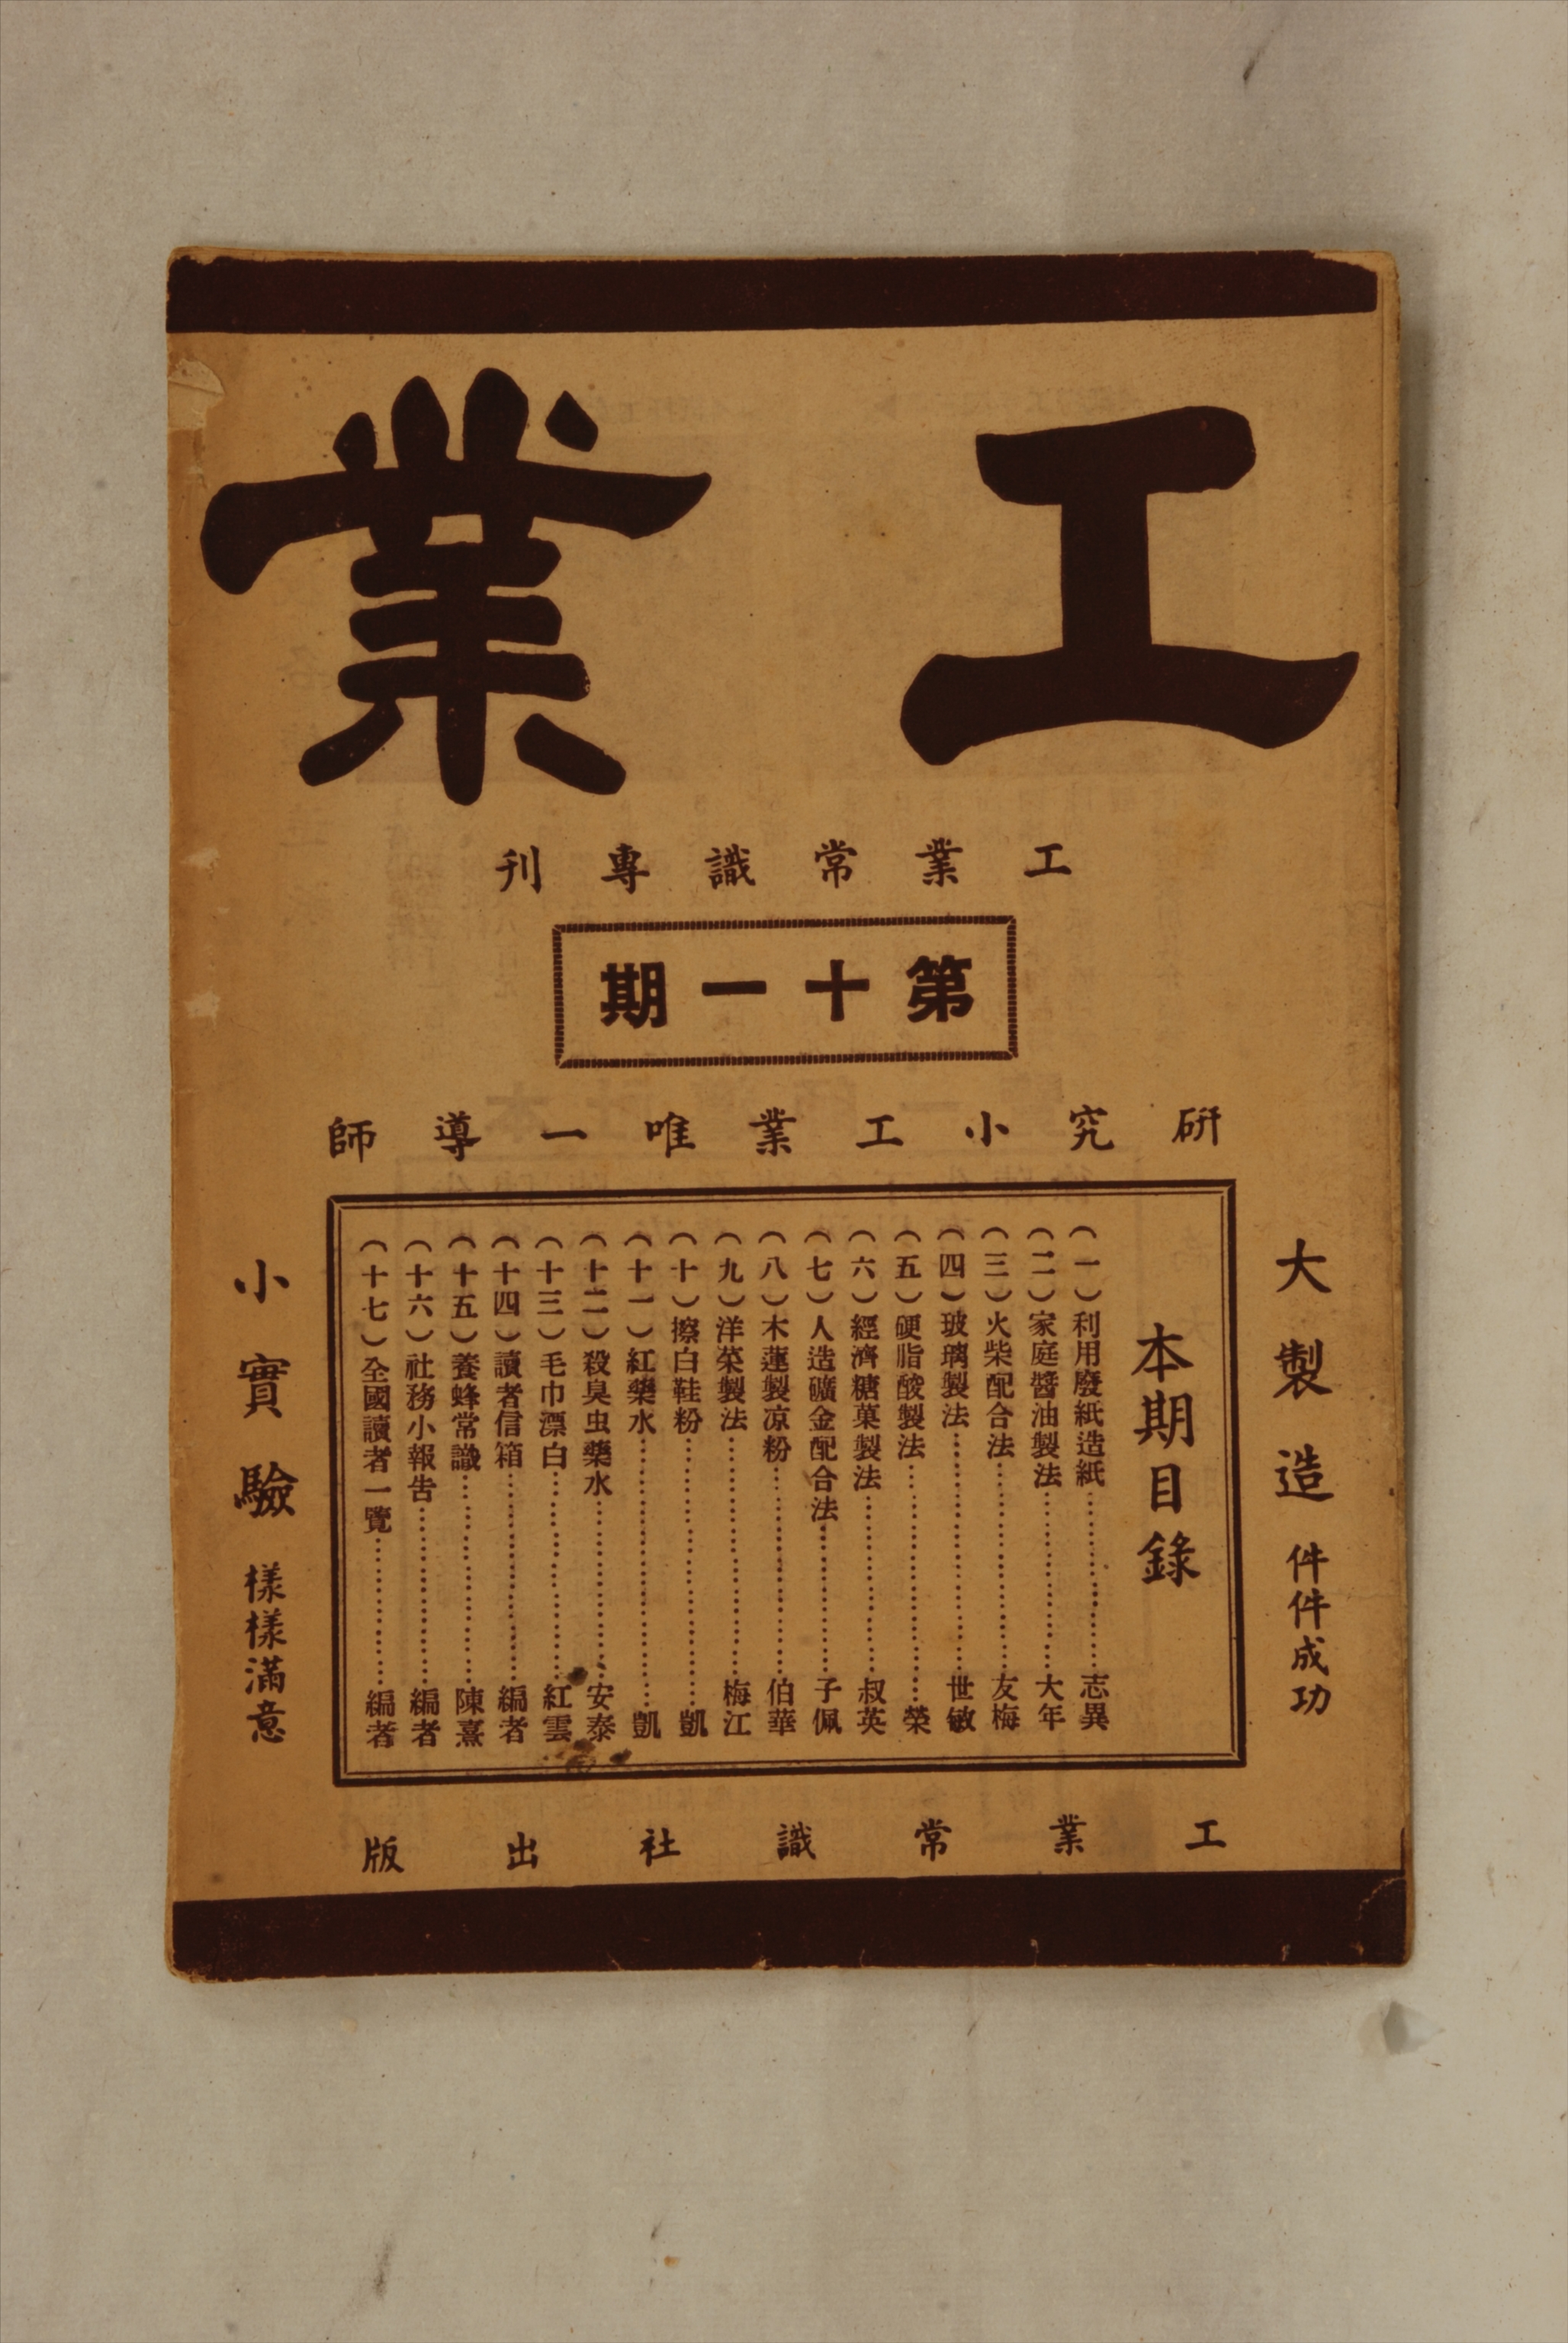 工業
工業常識專刊
第十一期
研究小工業唯一導師
大製造 件件成功
本期目錄
（一）利用廢紙造紙…………志異
（二）家庭醬油製法…………大年
（三）火柴配合法…………友梅
（四）玻璃製法…………世敏
（五）硬脂酸製法…………榮
（六）經濟糖菓製法…………叔英
（七）人造礦金配合法…………子佩
（八）木蓮製凉粉…………伯華
（九）洋菜製法…………梅江
（十）擦白鞋粉…………凱
（十一）紅藥水…………凱
（十二）殺臭虫藥水…………安泰
（十三）毛巾漂白…………紅雲
（十四）讀者信箱…………編者
（十五）養蜂常識…………陳熹
（十六）社務小報告…………編者
（十七）全國讀者一覽…………編者
小實驗 樣樣滿意
工業常識社出版